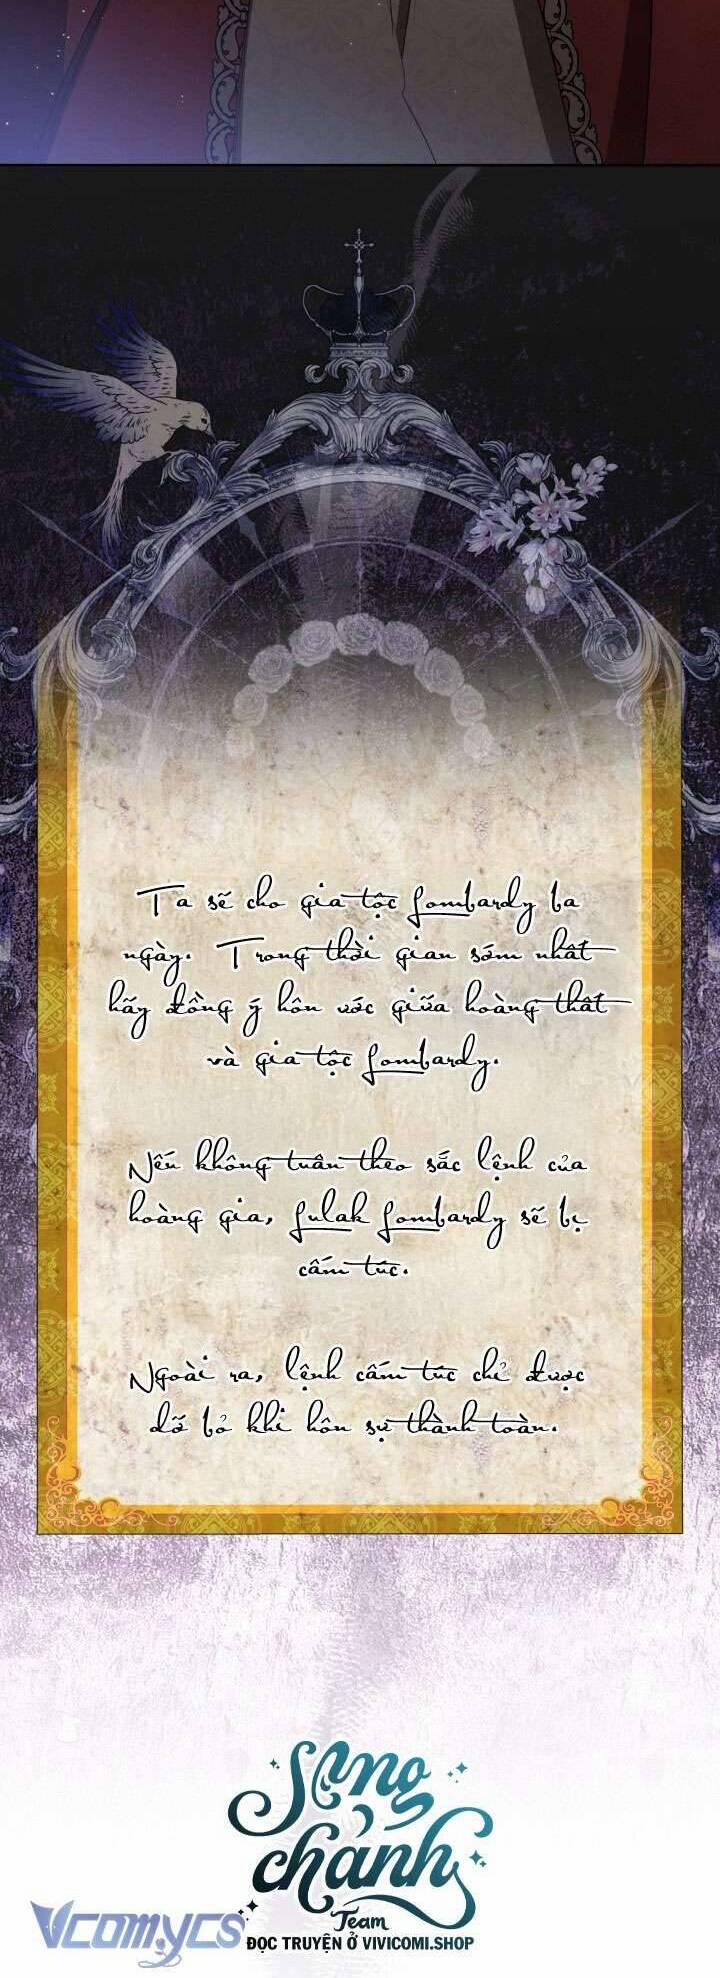 Ta sẽ cho gia tộc Lombardy ba
ngày. Trong thời gian sớm nhất
hãy đồng ý hôn ước giữa hoàng thất
và gia tộc Lombardy.
Nếu không tuân theo sắc lệnh của
hoàng gia, Lulak Lombardy sẽ bị
cấm túc.
Ngoài ra, lệnh cấm túc chỉ được
dỡ bỏ khi hôn sự thành toàn.
Song
chảnh
Team
Vcomycs
ĐỌC TRUYỆN Ở VIVICOMI.SHOP